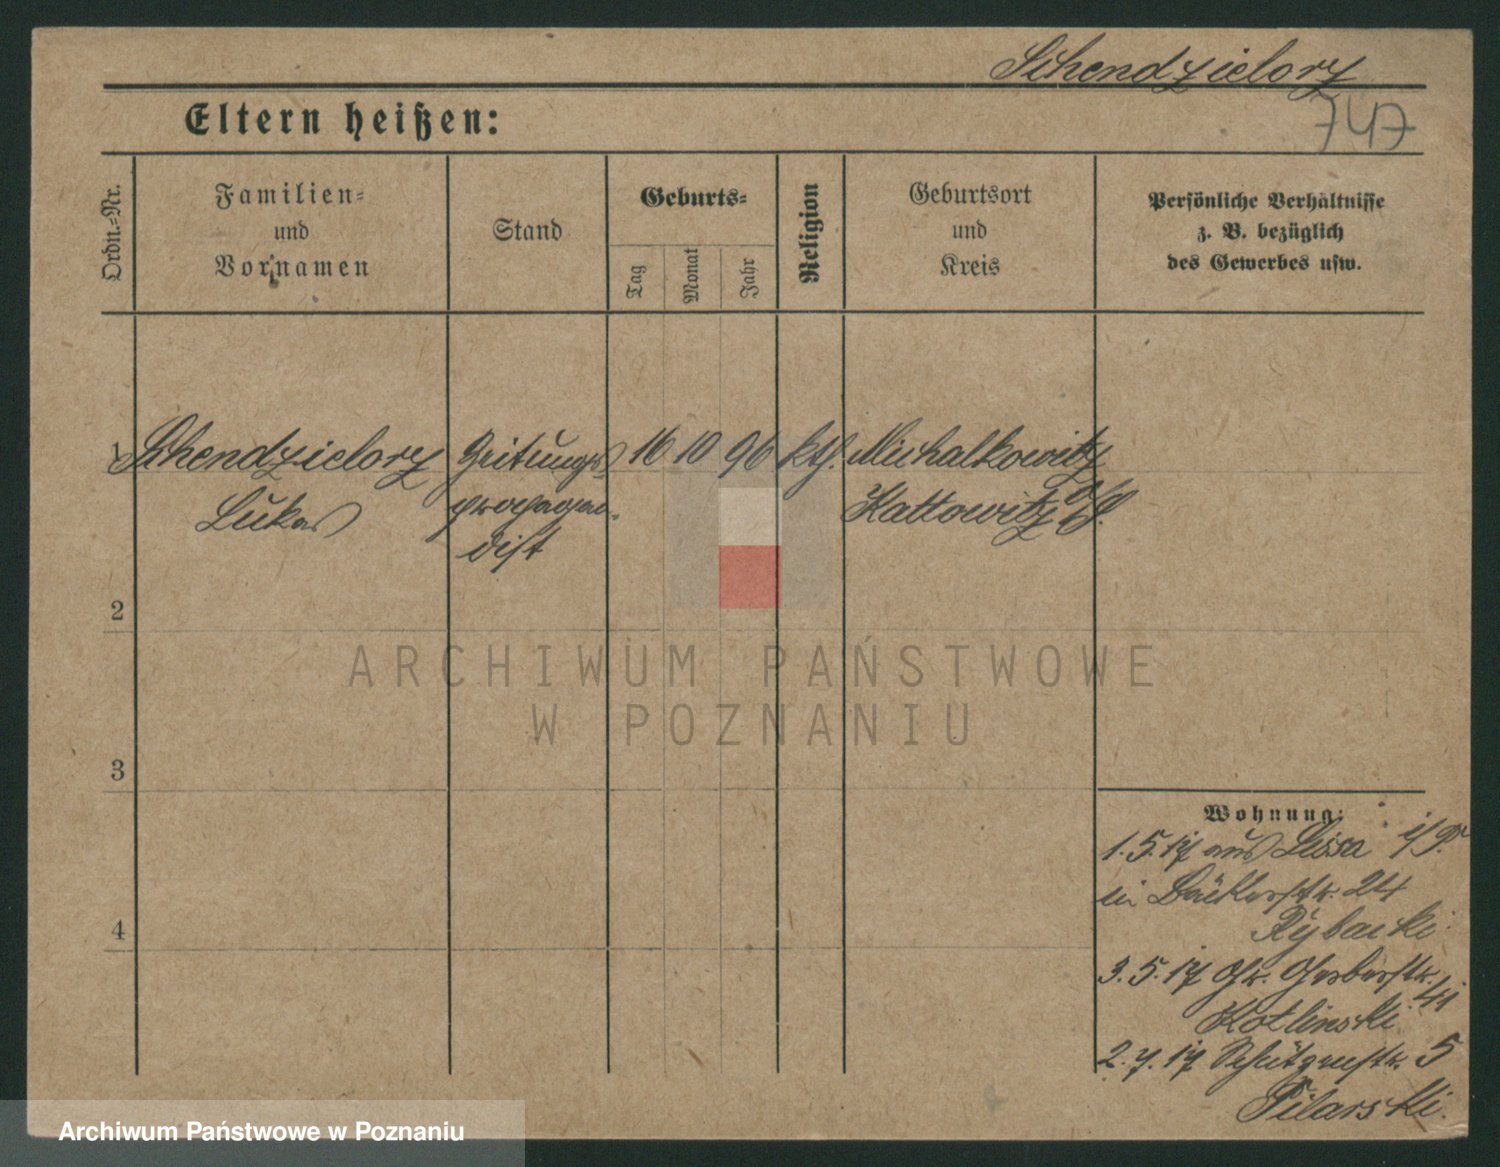 Schendzielorz
747
Eltern heißen:
Ordn.-Nr.
Familien-
und
Vornamen
Stand
Geburts-
Tag
Monat
Jahr
Religion
Geburtsort
und
Kreis
Persönliche Verhältnisse
z. B. bezüglich
des Gewerbes usw.
1 Schendzielorz Zeitungs 16 10 96 kth. Michalkowitz
Lukas propagan- Kattowitz O/S.
dist
2
3
4
ARCHIWUM PAŃSTWOWE
W POZNANIU
Wohnung:
1.5.17 aus Lissa i/P.
in Bäckerstr. 24
Rybacki
3.5.17 Gr. Gerberstr. 41
Kotlinski
2.7.17 Schützenstr. 5
Pilarski.
Archiwum Państwowe w Poznaniu